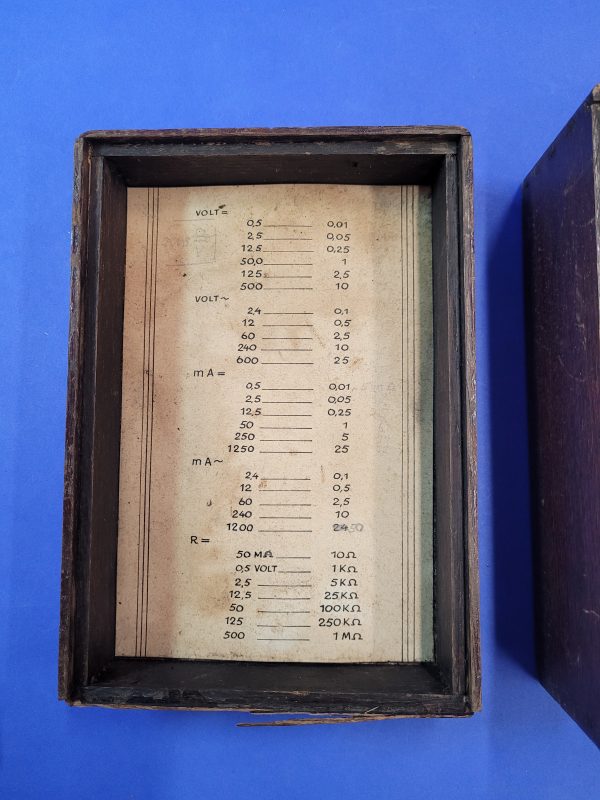 VOLT=
0,5 0,01
2,5 0,05
12,5 0,25
50,0 1
125 2,5
500 10
VOLT~
2,4 0,1
12 0,5
60 2,5
240 10
600 25
mA=
0,5 0,01
2,5 0,05
12,5 0,25
50 1
250 5
1250 25
mA~
2,4 0,1
12 0,5
60 2,5
240 10
1200 50
R=
50 MA 10Ω
0,5 VOLT 1KΩ
2,5 5KΩ
12,5 25KΩ
50 100KΩ
125 250KΩ
500 1MΩ